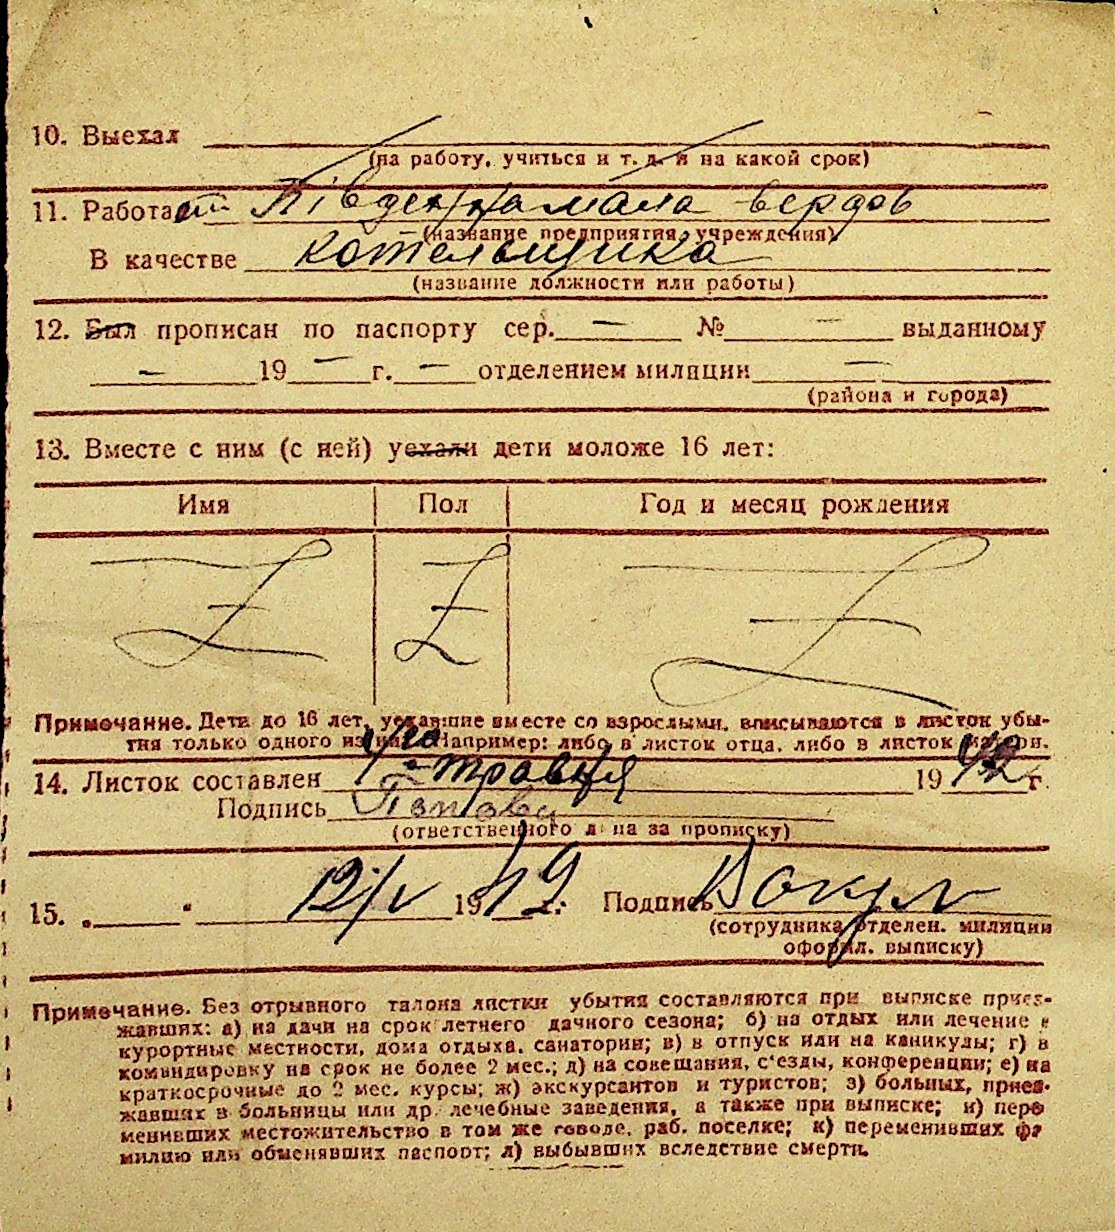 10. Выехал
(на работу, учиться и т. д. и на какой срок)
11. Работает Південна мала верф
(название предприятия, учреждения)
В качестве котельщика
(название должности или работы)
12. Был прописан по паспорту сер. — № — выданному
— 19 — г. — отделением милиции —
(района и города)
13. Вместе с ним (с ней) уехали дети моложе 16 лет:
Имя Пол Год и месяц рождения
Примечание. Дети до 16 лет, уехавшие вместе со взрослыми, вписываются в листок убы-
тия только одного из них. Например: либо в листок отца, либо в листок матери.
14. Листок составлен травня 1942 г.
Подпись
(ответственного лица за прописку)
15. „ “ 12/V 1942 г. Подпись
(сотрудника отделен. милиции
оформл. выписку)
Примечание. Без отрывного талона листки убытия составляются при выписке приез-
жавших: а) на дачи на срок летнего дачного сезона; б) на отдых или лечение в
курортные местности, дома отдыха, санатории; в) в отпуск или на каникулы; г) в
командировку на срок не более 2 мес.; д) на совещания, с'езды, конференции; е) на
краткосрочные до 2 мес. курсы; ж) экскурсантов и туристов; з) больных, приез-
жавших в больницы или др. лечебные заведения, а также при выписке; и) пере
менивших местожительство в том же городе, раб. поселке; к) переменивших фа
милию или обменявших паспорт; л) выбывших вследствие смерти.